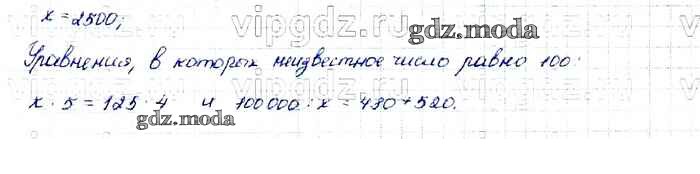 vipgdz.ru vipgdz.ru
x = 2500;
gdz.moda
Уравнения, в которых неизвестное число равно 100:
x · 5 = 125 · 4 и 100000 : x = 480 + 520.
gdz.moda
vipgdz.ru vipgdz.ru